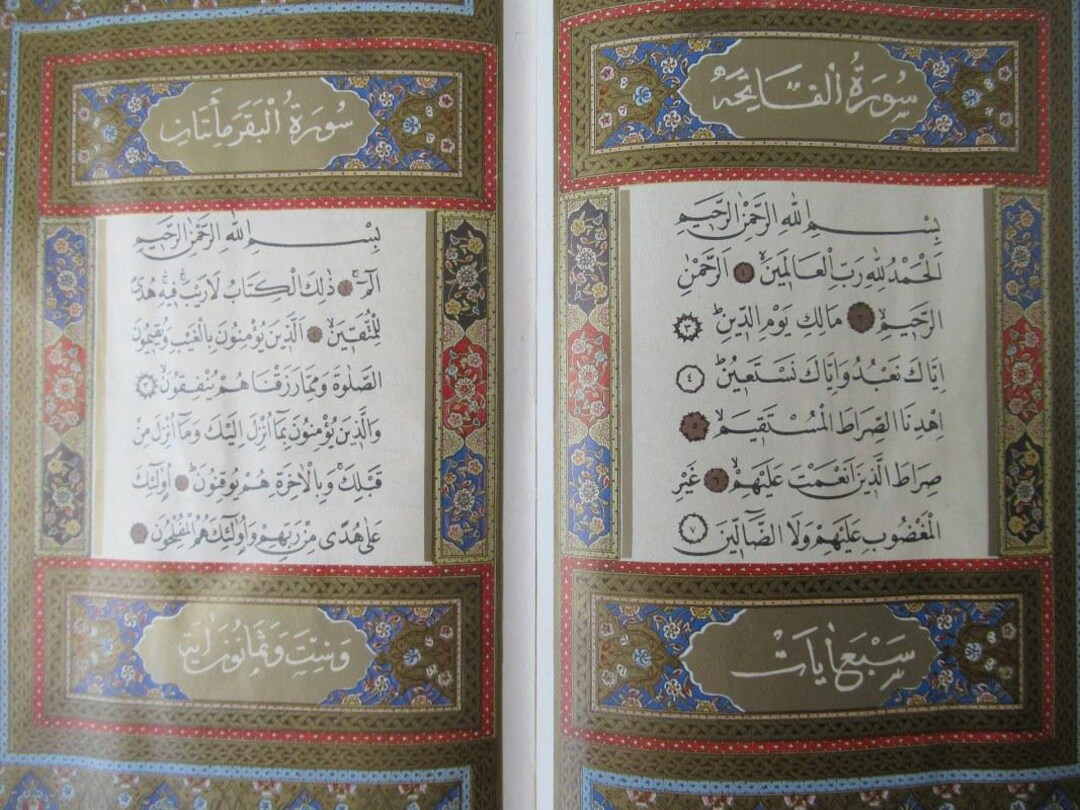 سُورَةُ الْفَاتِحَة
بِسْمِ اللهِ الرَّحْمٰنِ الرَّحِيمِ
اَلْحَمْدُ لِلّٰهِ رَبِّ الْعَالَمِينَۙ ١ اَلرَّحْمٰنِ
الرَّحِيمِۙ ٢ مَالِكِ يَوْمِ الدِّينِۜ ٣
اِيَّاكَ نَعْبُدُ وَاِيَّاكَ نَسْتَعِينُۜ ٤
اِهْدِنَا الصِّرَاطَ الْمُسْتَقِيمَۙ ٥
صِرَاطَ الَّذِينَ اَنْعَمْتَ عَلَيْهِمْۙ ٦ غَيْرِ
الْمَغْضُوبِ عَلَيْهِمْ وَلَا الضَّٓالِّينَ ٧
سَبْعُ اٰيَاتٍ
سُورَةُ الْبَقَرَة مِأَتَانِ
بِسْمِ اللهِ الرَّحْمٰنِ الرَّحِيمِ
الٓمٓۚ ١ ذٰلِكَ الْكِتَابُ لَا رَيْبَۚ ۛ فِيهِۚ ۛ هُدًى
لِلْمُتَّقِينَۙ ٢ اَلَّذِينَ يُؤْمِنُونَ بِالْغَيْبِ وَيُقِيمُونَ
الصَّلٰوةَ وَمِمَّا رَزَقْنَاهُمْ يُنْفِقُونَۙ ٣
وَالَّذِينَ يُؤْمِنُونَ بِمَٓا اُنْزِلَ اِلَيْكَ وَمَٓا اُنْزِلَ مِنْ
قَبْلِكَۚ وَبِالْاٰخِرَةِ هُمْ يُوقِنُونَۜ ٤ اُو۬لٰٓئِكَ
عَلٰى هُدًى مِنْ رَبِّهِمْ وَاُو۬لٰٓئِكَ هُمُ الْمُفْلِحُونَ ٥
وَسِتٌّ وَثَمَانُونَ اٰيَة